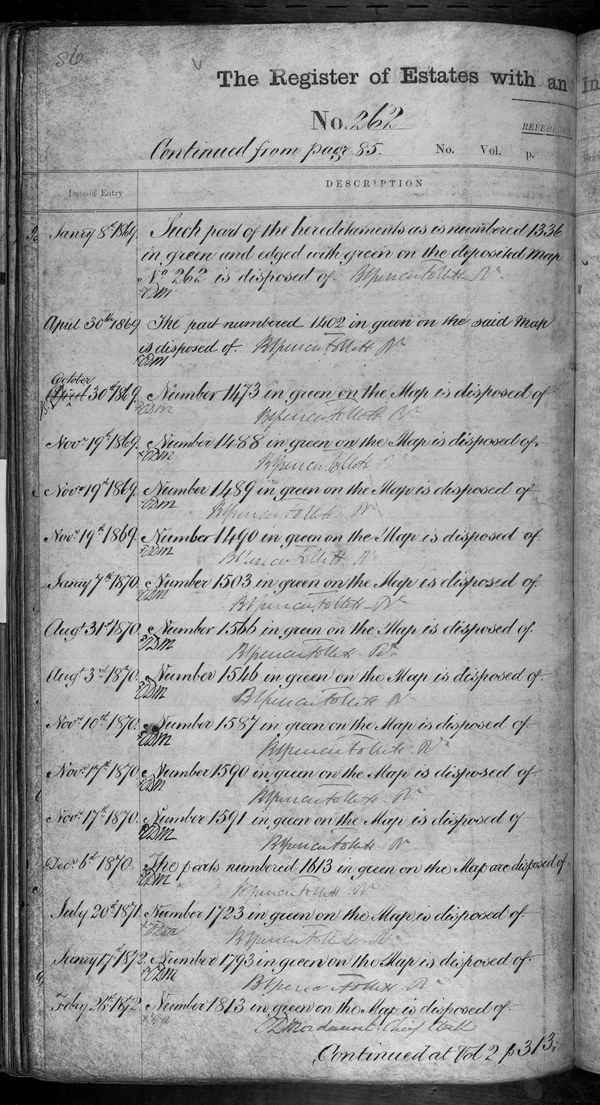 86
The Register of Estates with an In
No. 262
REFERE
Continued from page 85. No. Vol. p.
Date of Entry DESCRIPTION
Janry 8th 1869. Such part of the hereditaments as is numbered 1336
in green and edged with green on the deposited Map
No 262 is disposed of. BSpencer Follett Rr
April 30th 1869 The part numbered 1402 in green on the said Map
is disposed of. BSpencer Follett Rr
October
April 30th 1869. Number 1473 in green on the Map is disposed of
BSpencer Follett Rr
Novr 19th 1869. Number 1488 in green on the Map is disposed of.
BSpencer Follett
Novr 19th 1869. Number 1489 in green on the Map is disposed of
BSpencer Follett Rr
Novr 19th 1869. Number 1490 in green on the Map is disposed of
BSpencer Follett Rr
Janry 7th 1870. Number 1503 in green on the Map is disposed of.
BSpencer Follett Rr
Augt 31st 1870. Number 1566 in green on the Map is disposed of.
BSpencer Follett Rr
Augt 3rd 1870. Number 1546 in green on the Map is disposed of
BSpencer Follett Rr
Novr 10th 1870. Number 1587 in green on the Map is disposed of
BSpencer Follett Rr
Novr 17th 1870. Number 1590 in green on the Map is disposed of
BSpencer Follett Rr
Novr 17th 1870. Number 1591 in green on the Map is disposed of
BSpencer Follett Rr
Decr 6th 1870. The parts numbered 1613 in green on the Map are disposed of
BSpencer Follett Rr
July 20th 1871. Number 1723 in green on the Map is disposed of
BSpencer Follett Rr
Janry 17th 1872. Number 1793 in green on the Map is disposed of
BSpencer Follett Rr
Febry 28th 1872. Number 1813 in green on the Map is disposed of.
Mordaunt Chief Clerk
Continued at Vol 2 p 313.